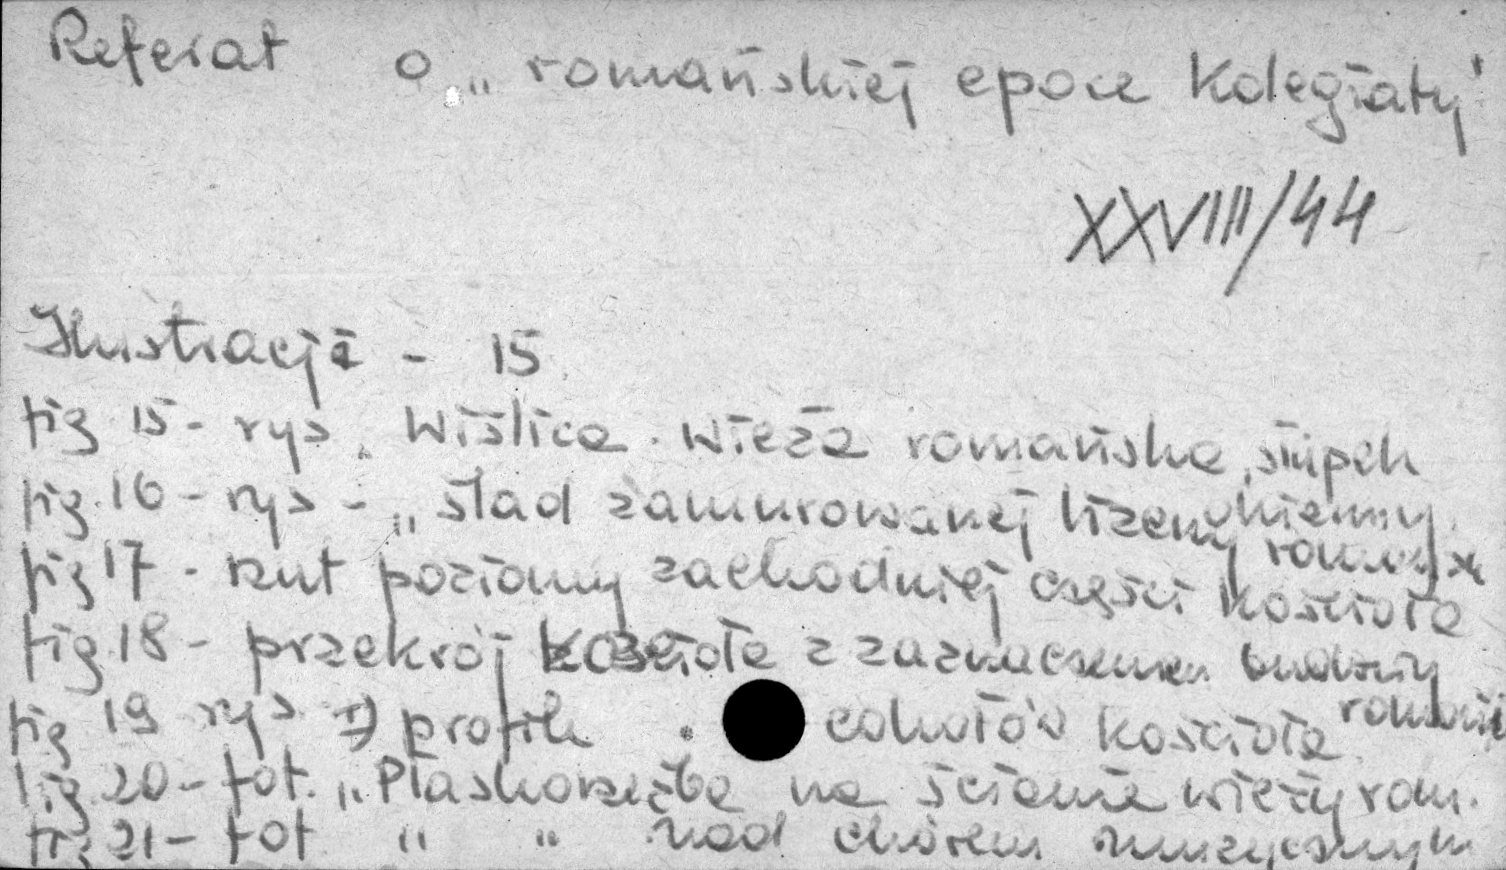 Referat o „romańskiej epoce Kolegiaty"
XXVIII/44
Ilustracji - 15
fig 15 - rys. Wiślica. Wieża romańska, słupek
fig. 16 - rys - „ślad zamurowanej lizeny
fig 17 - rzut poziomy zachodniej części kościoła
fig. 18 - przekrój kościoła z zaznaczeniem budowy
fig 19 rys profile cokołów kościoła
fig. 20 - fot. „Płaskorzeźba na ścianie wieży rom.
fig 21 - fot " " nad chórem muzycznym